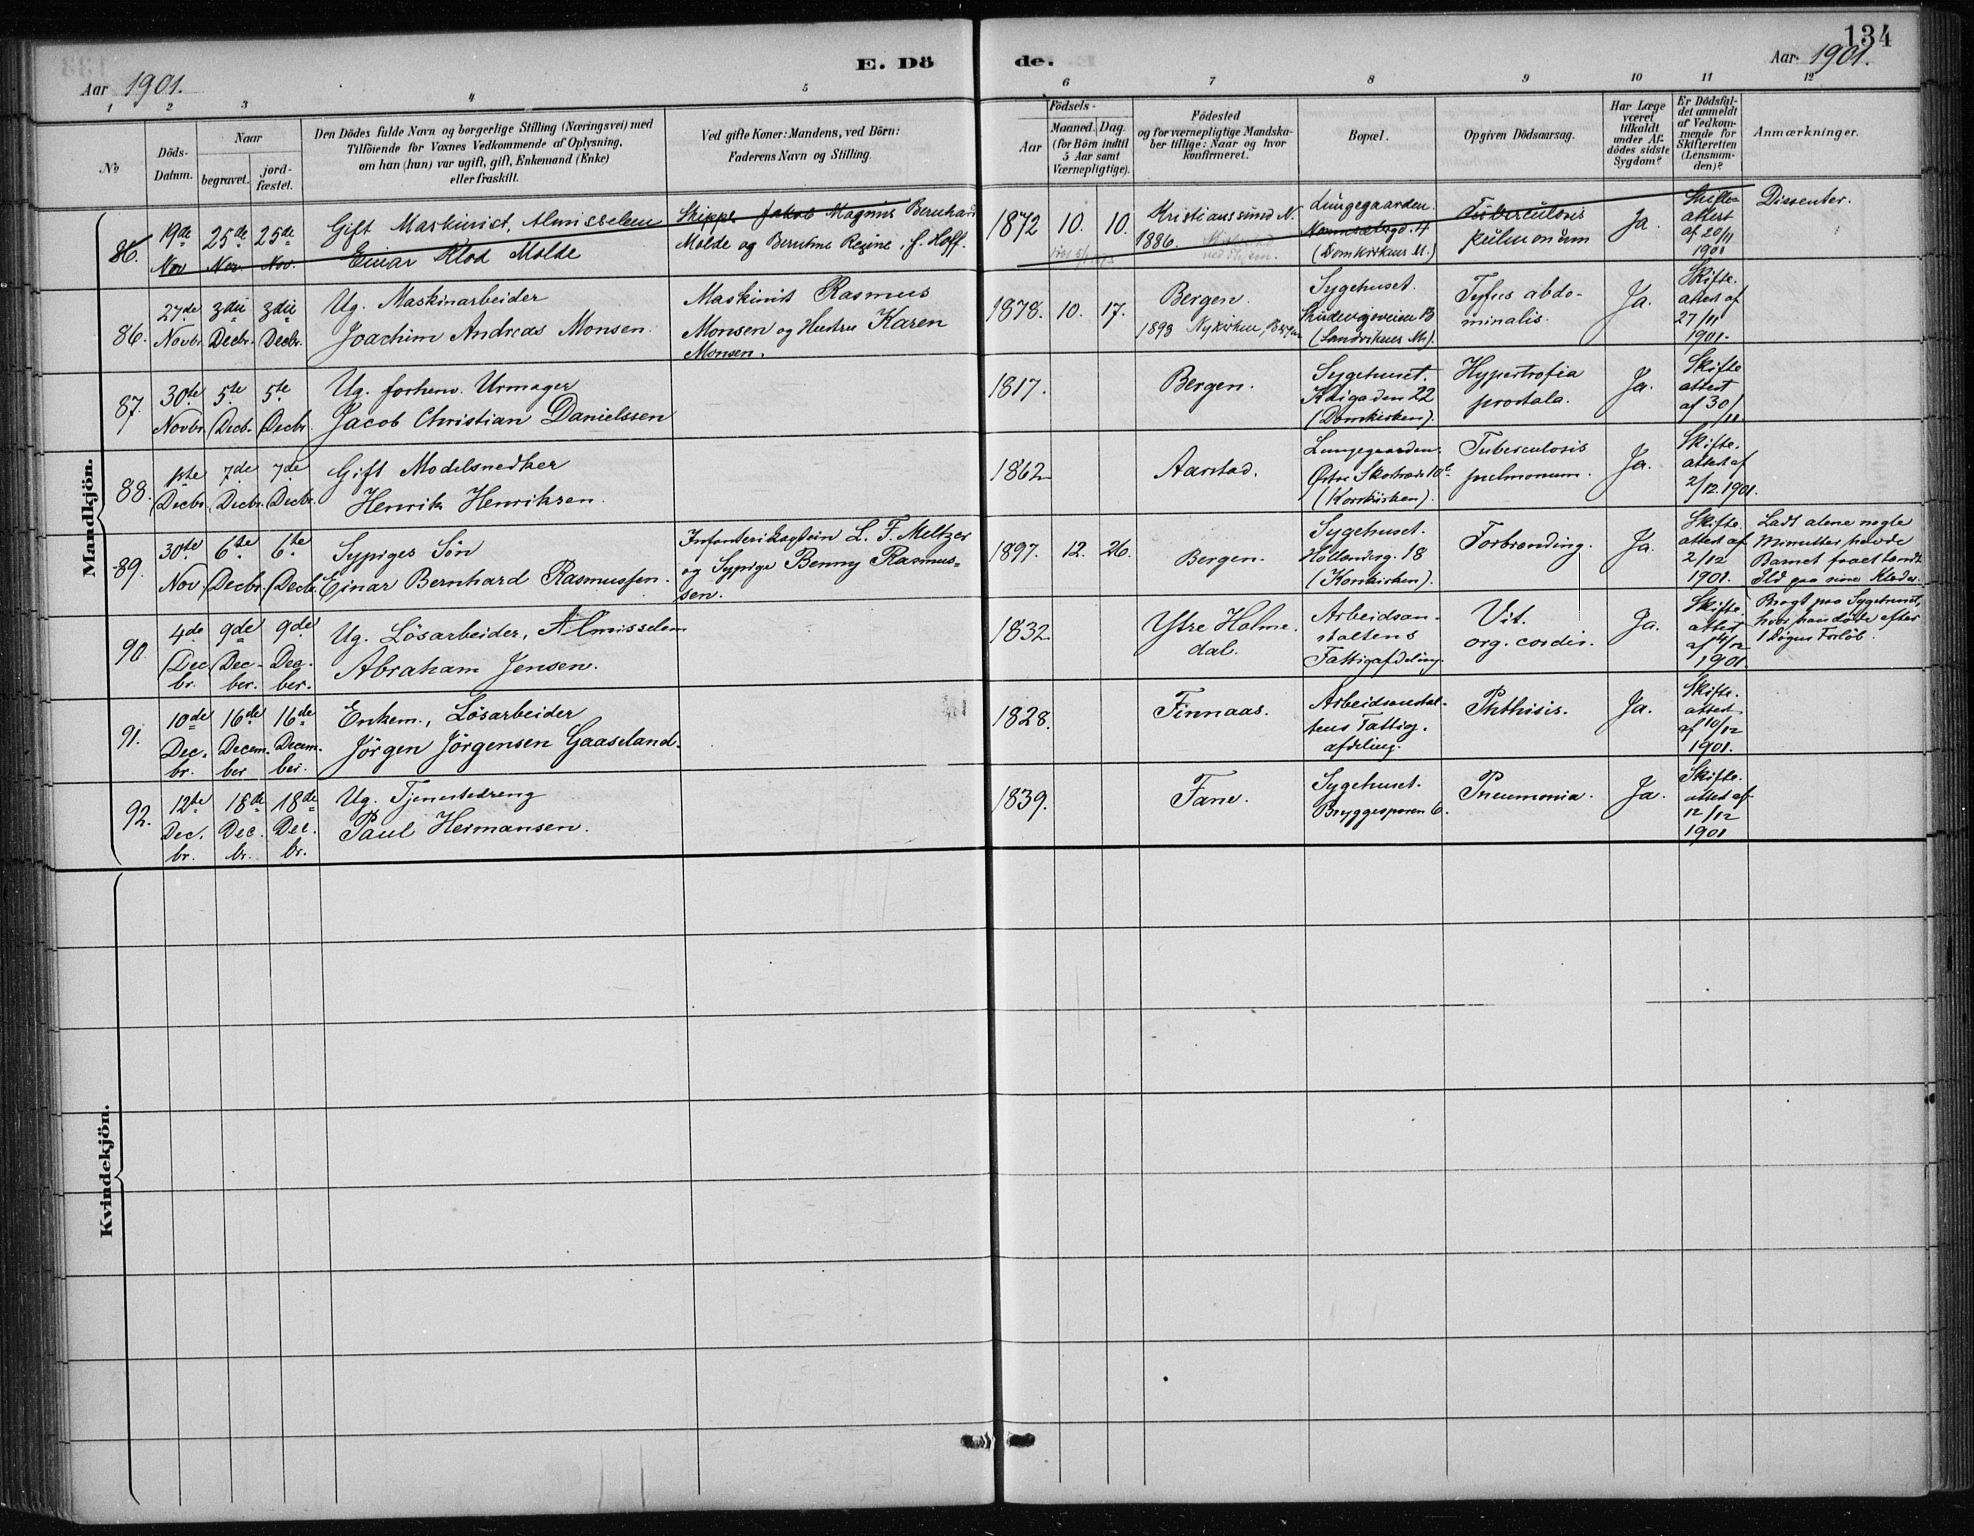 134
E. Dö de.
Aar 1901.
Aar 1901.
1 2 3 4 5 6 7 8 9 10 11 12
No
Döds-
Datum.
Naar
begravet.
jord-
fæstet.
Den Dödes fulde Navn og borgerlige Stilling (Næringsvei) med
Tilföiende for Voxnes Vedkommende af Oplysning,
om han (hun) var ugift, gift, Enkemand (Enke)
eller fraskilt.
Ved gifte Koner: Mandens, ved Börn:
Faderens Navn og Stilling.
Födsels-
Aar
Maaned. Dag.
(for Börn indtil
5 Aar samt
Værnepligtige).
Födested
og for værnepligtige Mandska-
ber tillige: Naar og hvor
konfirmeret.
Bopæl.
Opgiven Dödsaarsag.
Har Læge
været
tilkaldt
under Af-
dödes sidste
Sygdom?
Er Dödsfal-
det anmeldt
af Vedkom-
mende for
Skifteretten
(Lensman-
den)?
Anmærkninger.
Mandkjön.
86.
19de
Nov
25de
Nov.
25de
Nov.
Gift Maskinist, Almisselem
Einar Klod Molde
Skipper Jakob Magnus Bernhard
Molde og Berntine Regine, f. Hoff.
1872 10. 10.
Kristianssund N.
1886.
Lungegaarden.
4
(Domkirkens M.)
Tuberculosis
pulmonum
Ja.
Skifte-
attest
af 20/11
1901
Dissenter.
86.
27de
Novbr.
3die
Decbr.
3die
Decbr.
Ug. Maskinarbeider
Joachim Andreas Monsen.
Maskinist Rasmus
Monsen og Hustru Karen
Monsen.
1878. 10. 17.
Bergen.
1893 Nykirken, Bergen
Sygehuset.
(Sandvikens M.).
Tyfus abdo-
minalis.
Ja.
Skifte.
attest af
27/11
1901.
87.
30te
Novbr.
5te
Decb.
5te
Decbr.
Ug. forhenv. Urmager
Jacob Christian Danielssen
1817.
Bergen.
Sygehuset.
22
(Domkirken).
Hypertrofia
prostata.
Ja.
Skifte
attest
af 30/
11.
88.
1ste
Decbr.
7de
Decbr.
7de
Decbr.
Gift Modelsnedker
Henrik Henriksen.
1862
Aarstad.
Lungegaarden.
(Korskirken).
Tuberculosis
pulmonum.
Ja.
Skifte.
attest af
2/12 1901.
89.
30te
Nov.
6te
Decbr.
6te
Decbr.
Sypiges Sön
Einar Bernhard Rasmussen.
Infanterikaptein L. F. Meltzer
og Sypige Benny Rasmus-
sen.
1897. 12. 26.
Bergen.
Sygehuset.
Hollenderg. 18
(Korskirken).
Forbrænding.
Ja.
Skifte.
attest af
2/12
1901.
Ladt alene nogle
Minutter havde
Barnet faaet tændt
Ild paa sine Klæder.
Bragt paa Sygehuset,
hvor han döde efter
1 Dögns Forløb.
90.
4de
Dec
br.
9de
Dec-
ber.
9de
Dec-
ber.
Ug. Lösarbeider, Almisselem
Abraham Jensen.
1832.
Ytre Holme.
dal.
Arbeidsan-
staltens
Fattigafdeling.
Vit.
org. cordis.
Ja.
Skifte.
attest
1901
91.
10de
Dec.
br.
16de
Decem.
ber
16de
Decem.
ber.
Enkem., Lösarbeider
Jörgen Jörgensen Gaaseland.
1828.
Finnaas.
Arbeidsanstal-
tens Fattig.
afdeling.
Phthisis.
Ja.
Skifte.
attest
af 10/12
1901.
92.
12te
Dec.
br.
18de
Dec.
br.
18de
Dec.
br.
Ug. Tjenestedreng
Paul Hermansen.
1839.
Fane.
Sygehuset.
Bryggesporen 6.
Pneumonia.
Ja.
Skifte.
attest af
12/12
1901
Kvindekjön.